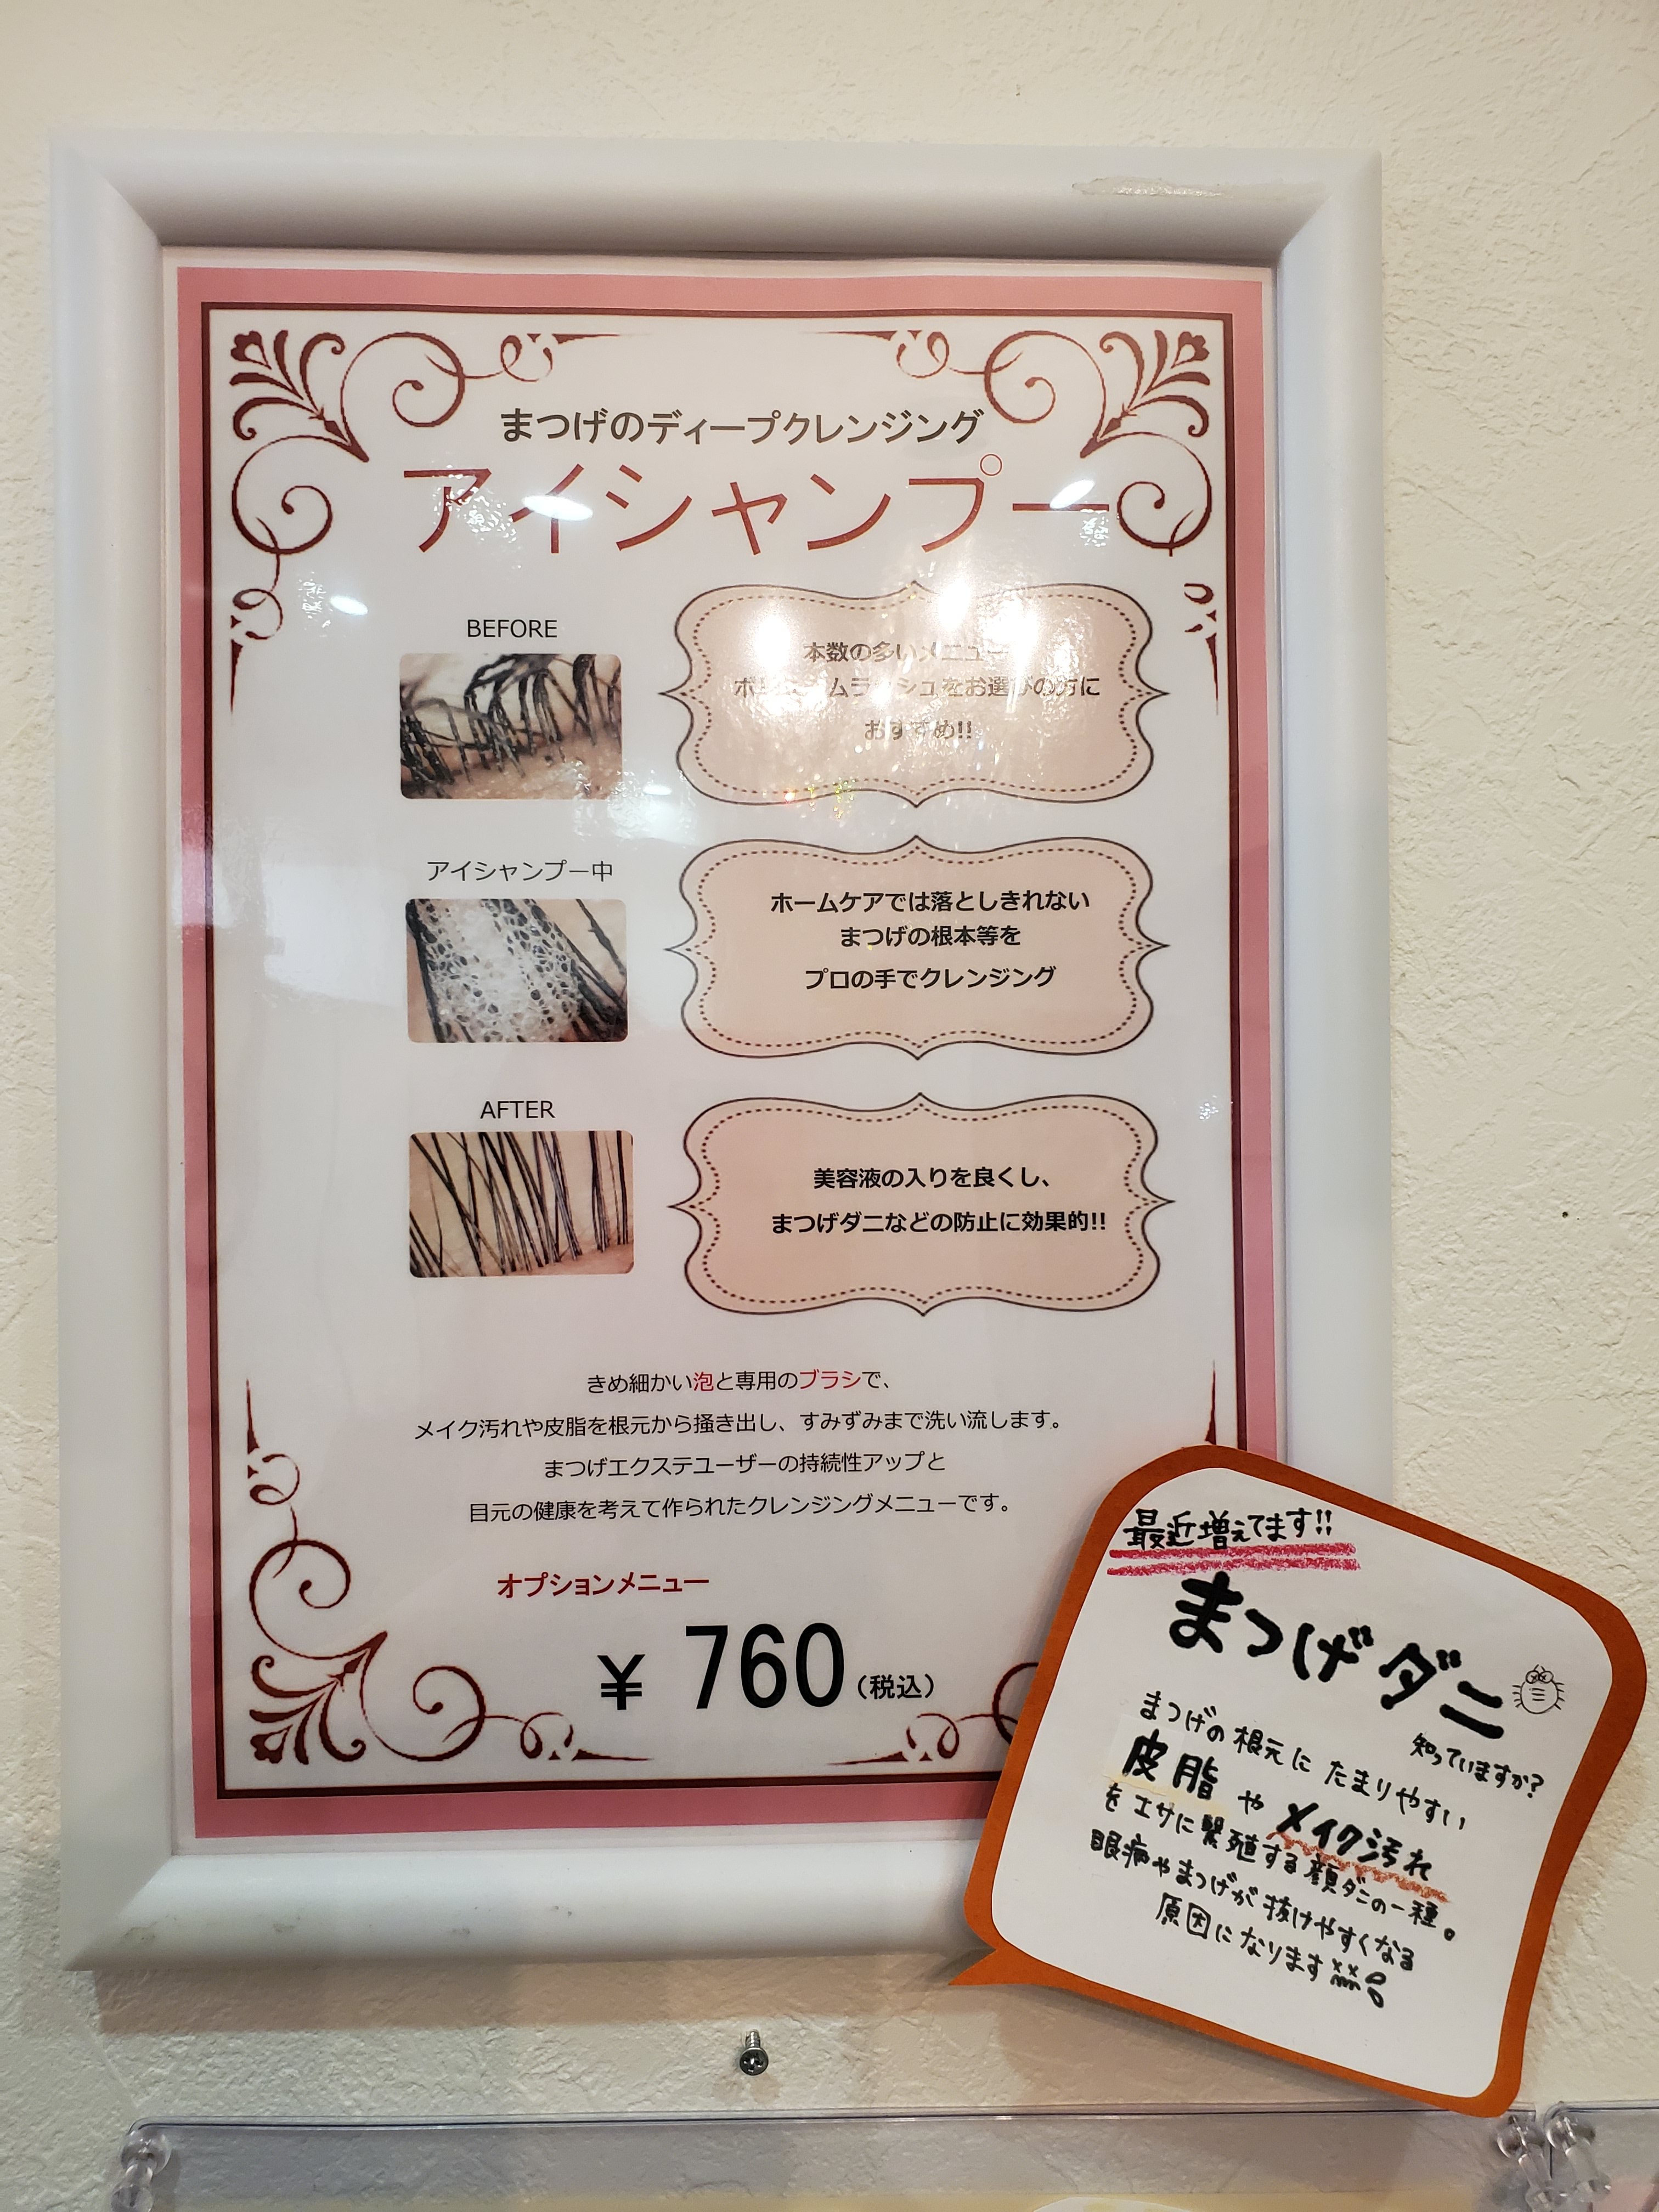 まつげのディープクレンジング
アイシャンプー
BEFORE
本数の多いメニュー
ボリュームラッシュをお選びの方に
おすすめ!!
アイシャンプー中
ホームケアでは落としきれない
まつげの根本等を
プロの手でクレンジング
AFTER
美容液の入りを良くし、
まつげダニなどの防止に効果的!!
きめ細かい泡と専用のブラシで、
メイク汚れや皮脂を根元から掻き出し、すみずみまで洗い流します。
まつげエクステユーザーの持続性アップと
目元の健康を考えて作られたクレンジングメニューです。
オプションメニュー
¥ 760(税込)
最近増えてます!!
まつげダニ
知っていますか?
まつげの根元にたまりやすい
皮脂やメイク汚れ
をエサに繁殖する顔ダニの一種。
眼病やまつげが抜けやすくなる
原因になります